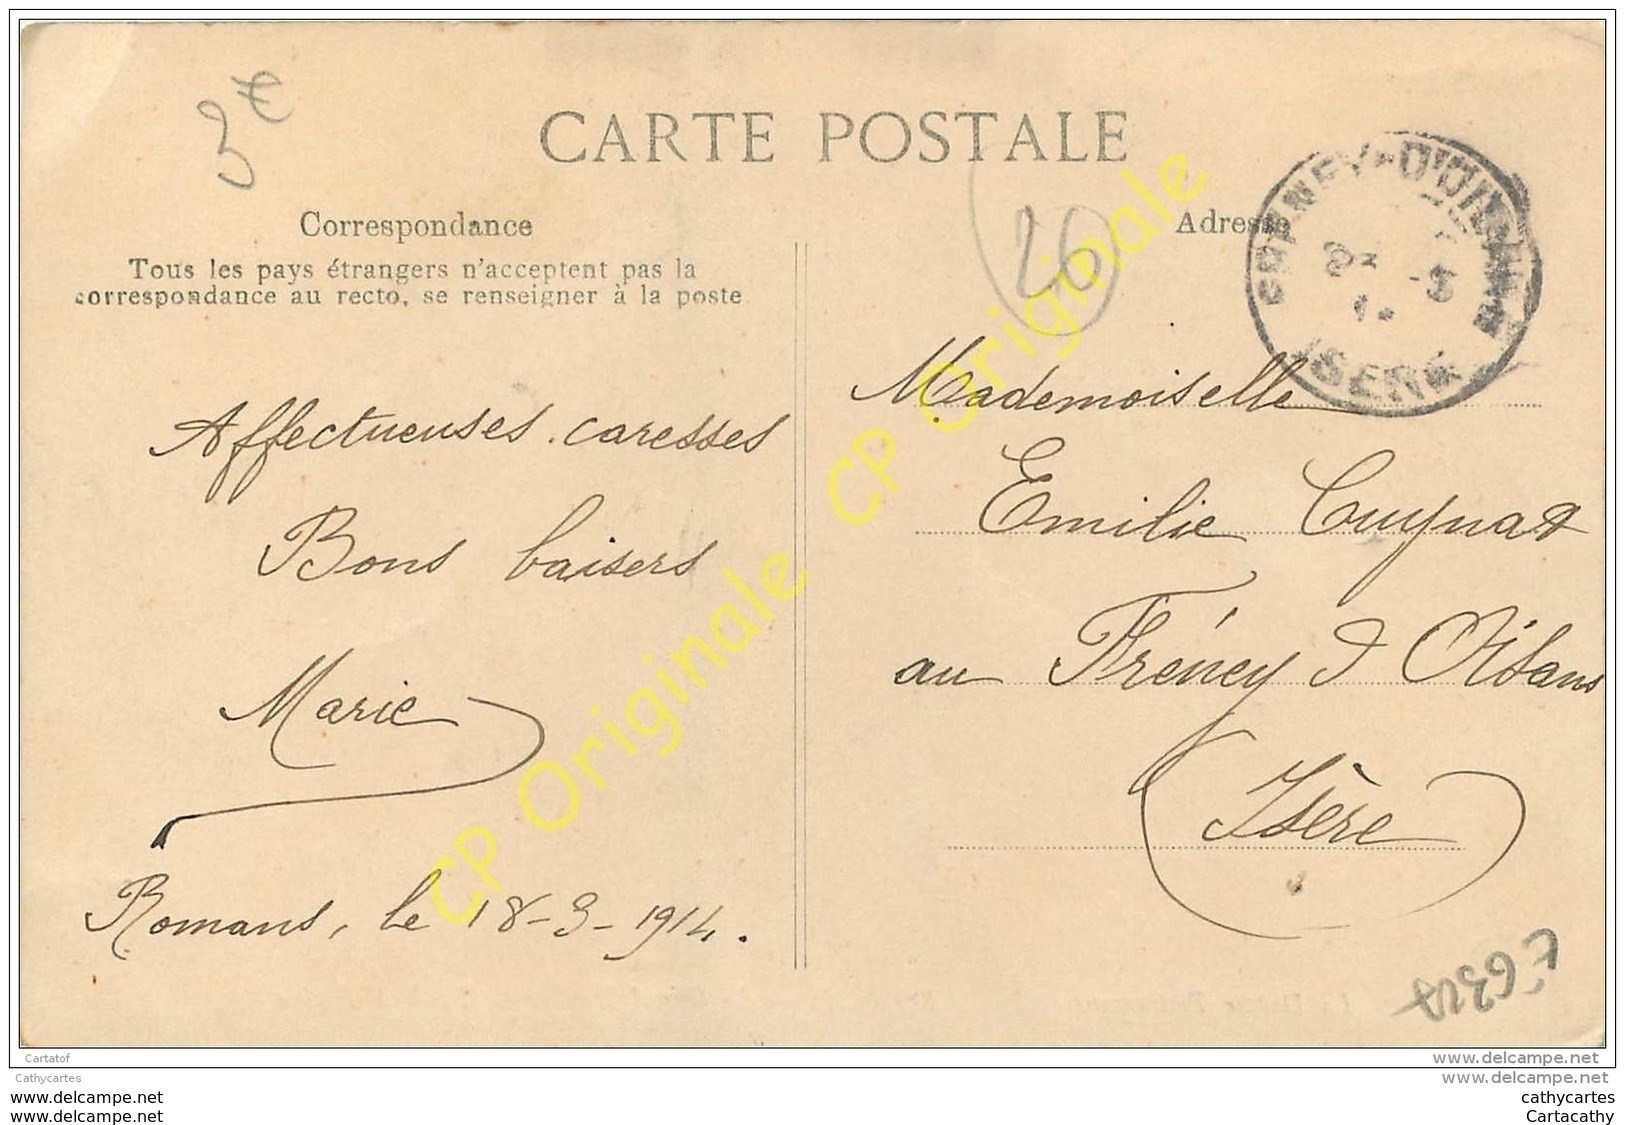 3€
CARTE POSTALE
Correspondance
Tous les pays étrangers n'acceptent pas la
correspondance au recto, se renseigner à la poste
26
Adresse
ISERE
Affectueuses caresses
Bons baisers
Marie
Romans, le 18-3-1914.
Mademoiselle
Emilie Cuynat
au Fréney d Oisans
Isère
CP Originale CP Originale
Cartatof
www.delcampe.net
Cathycartes
www.delcampe.net
www.delcampe.net
cathycartes
www.delcampe.net
Cartacathy